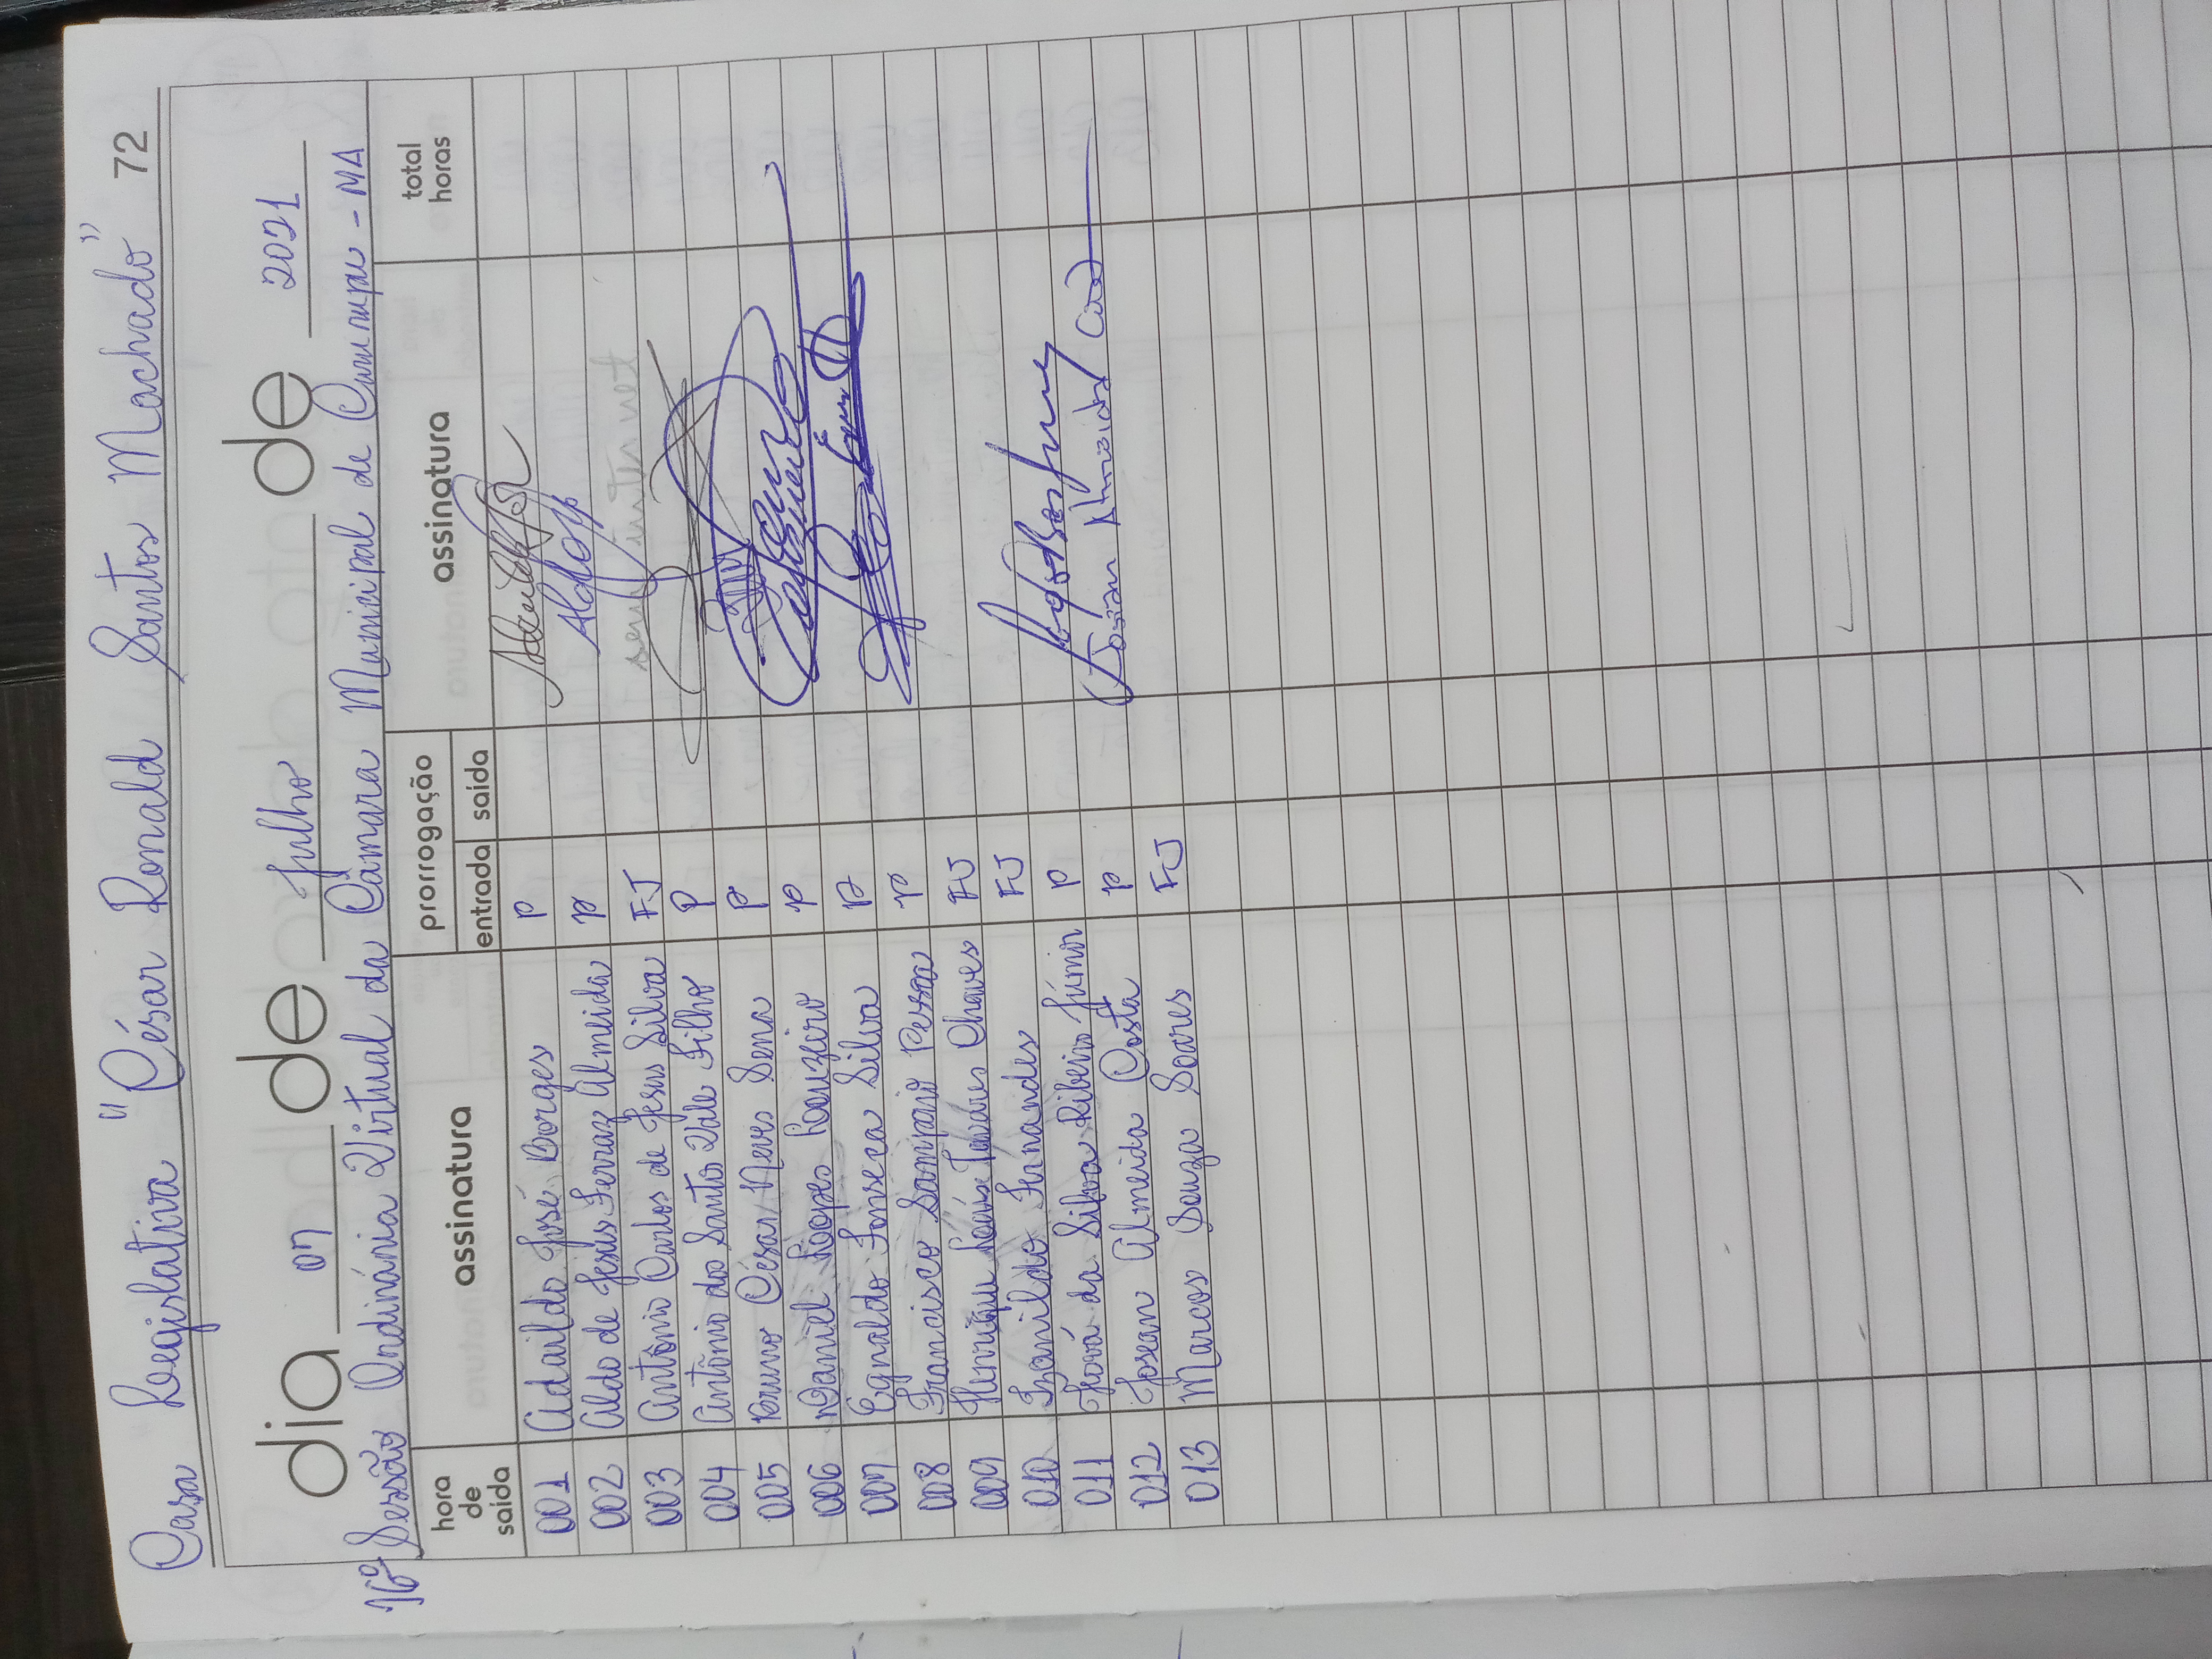 Casa Legislativa "César Ronald Santos Machado" 72
dia 07 de Julho de 2021
16º Sessão Ordinária Virtual da Câmara Municipal de Cururupu - MA
hora de saída assinatura prorrogação entrada saída assinatura total horas
001 Adaildo José Borges P
002 Aldo de Jesus Ferraz Almeida P
003 Antônio Carlos de Jesus Silva FJ sem internet
004 Antônio dos Santos Vale Filho P
005 Bruno César Neves Sena P
006 Daniel Lopes Louzeiro P
007 Egnaldo Fonseca Silva P
008 Francisco Sampaio Pessoa P
009 Henrique Louis Tavares Chaves FJ
010 Izanildo Fernandes FJ
011 Jová da Silva Ribeiro Júnior P
012 Josean Almeida Costa P Josean Almeida
013 Marcos Souza Soares FJ